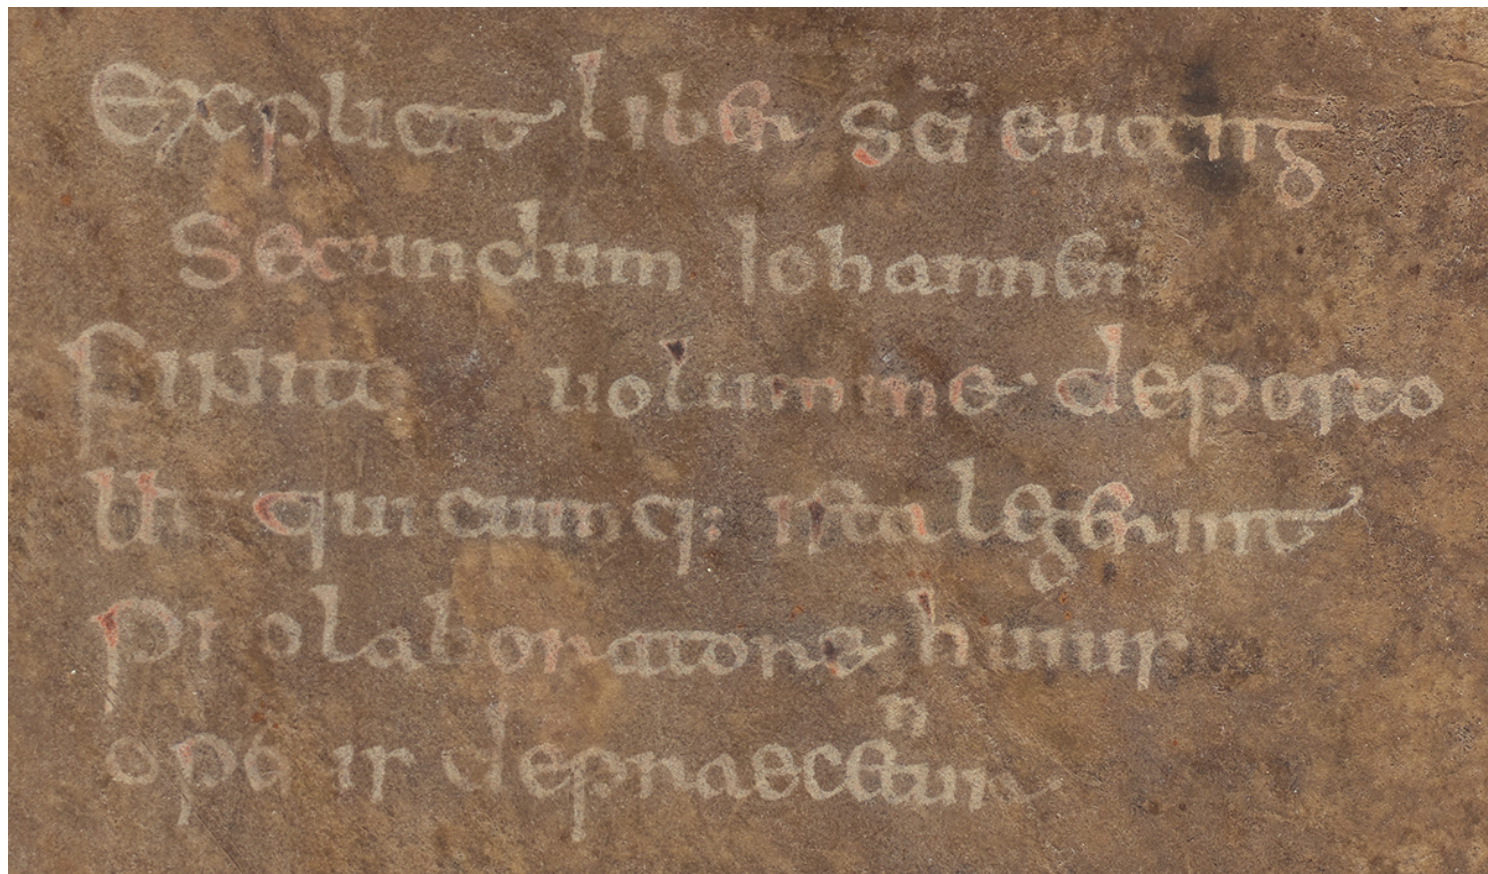 Explicit liber sc̄i euang̅
secundum Iohannen
Finito uolumine deposco
Ut quicumq: ista legerint
Pro laboratore huius
operis depraecentur